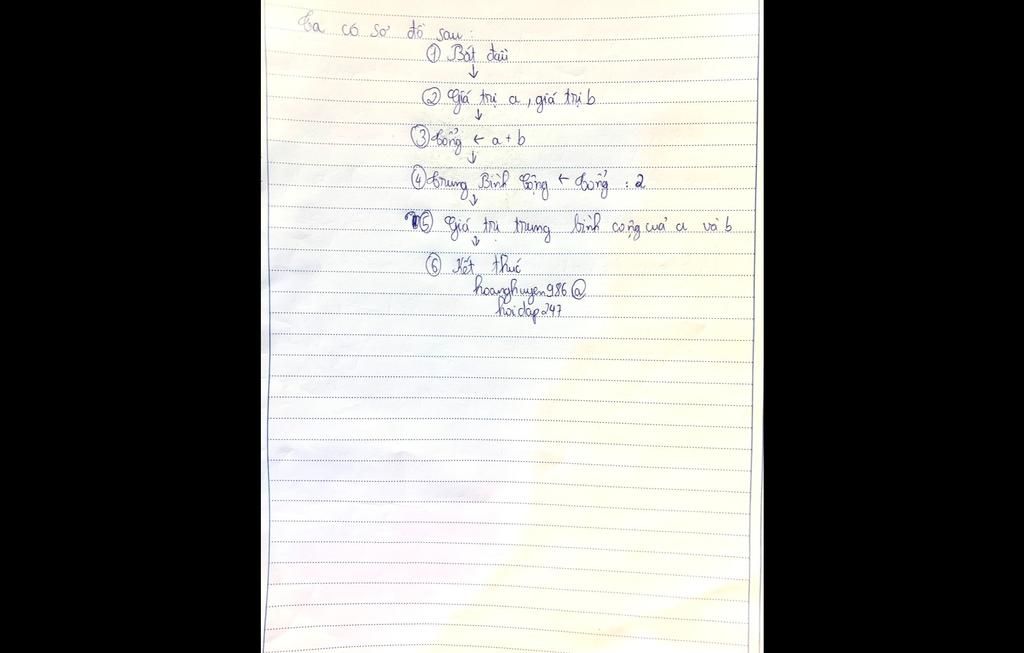 Ta có sơ đồ sau:
① Bắt đầu
↓
② Giá trị a, giá trị b
↓
③ Tổng ← a + b
↓
④ Trung Bình Cộng ← Tổng : 2
↓
⑤ Giá trị trung bình cộng của a và b
↓
⑥ Kết thúc
hoanghuyen986@
hoidap247